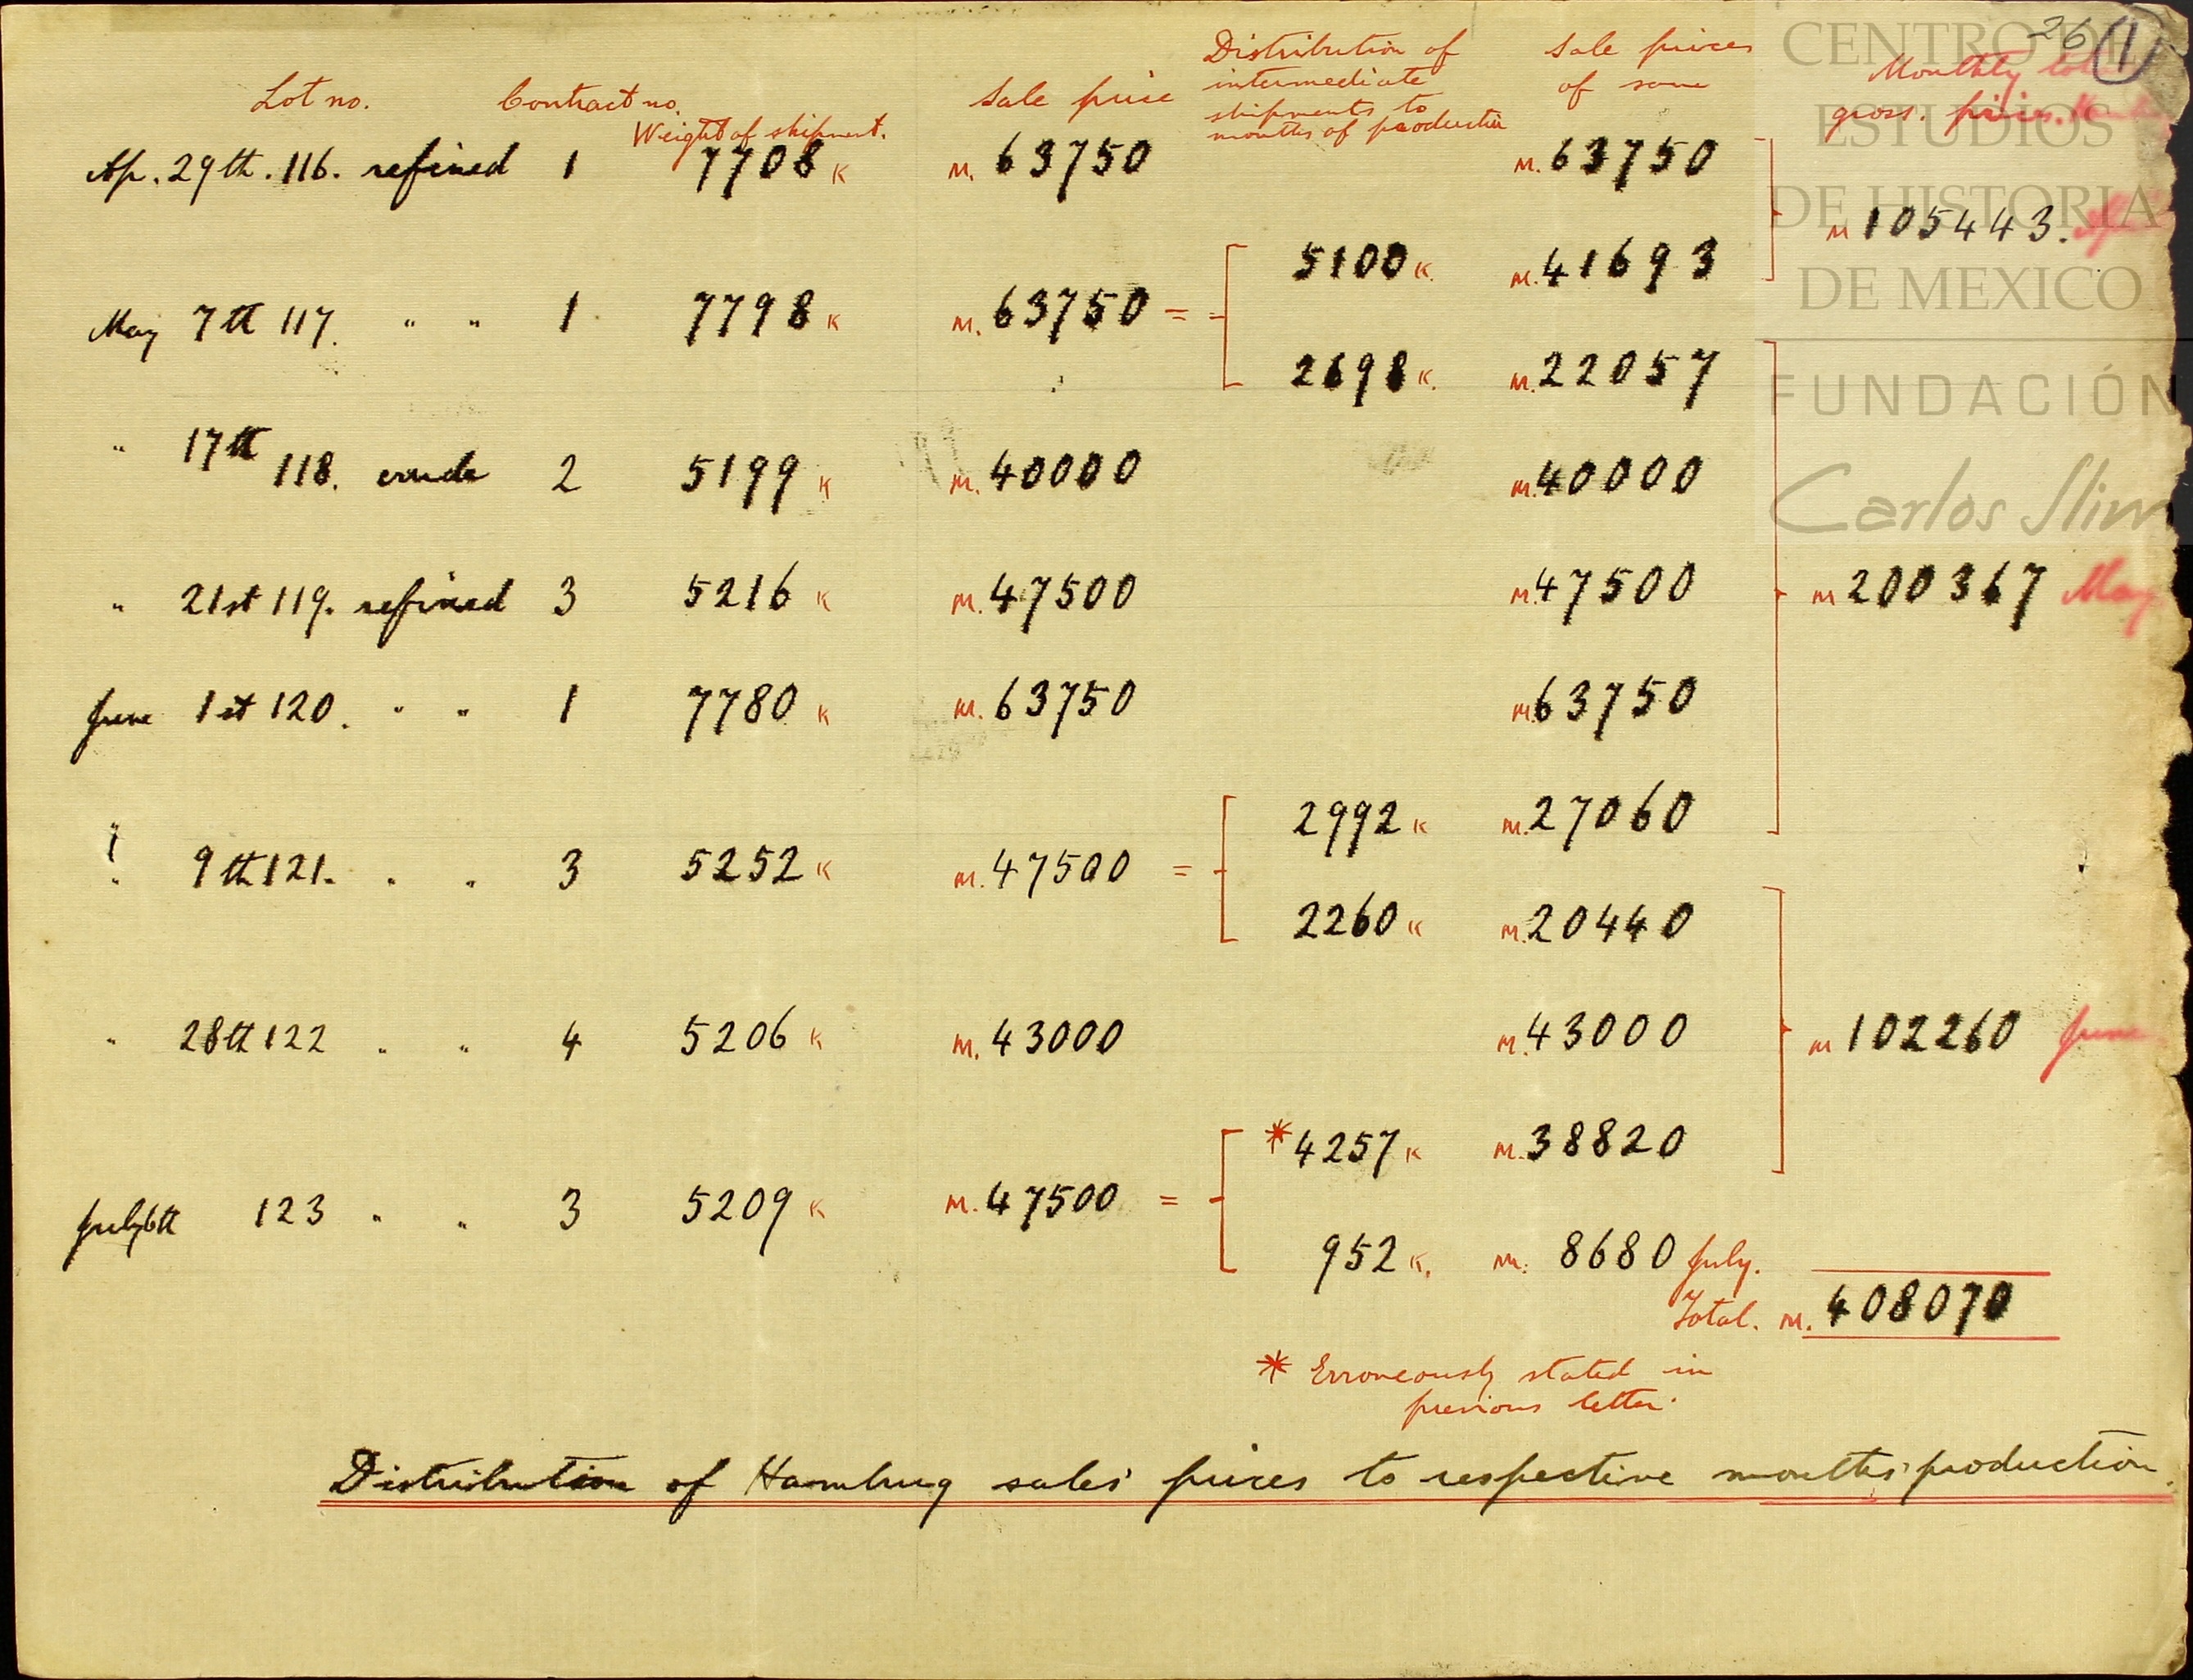 26 1
Lot no. Contract no. Weight of shipment. Sale price Distribution of intermediate shipments to months of production Sale prices of same Monthly gross. prices.
Ap. 29th. 116. refined 1 7708 K M. 63750 M. 63750
M 105443.
5100 K. M. 41693
May 7th 117. " " 1 7798 K M. 63750 =
2698 K. M. 22057
" 17th 118. crude 2 5199 K M. 40000 M. 40000
" 21st 119. refined 3 5216 K M. 47500 M. 47500 M 200367 May
June 1st 120. " " 1 7780 K M. 63750 M. 63750
2992 K M. 27060
" 9th 121. " " 3 5252 K M. 47500 =
2260 K M. 20440
" 28th 122 " " 4 5206 K M. 43000 M. 43000 M 102260 June
* 4257 K M. 38820
July 6th 123 " " 3 5209 K M. 47500 =
952 K. M. 8680 July.
Total. M. 408070
* Erroneously stated in
previous letter.
Distribution of Hamburg sales prices to respective months' production.
CENTRO DE
ESTUDIOS
DE HISTORIA
DE MEXICO
FUNDACIÓN
Carlos Slim